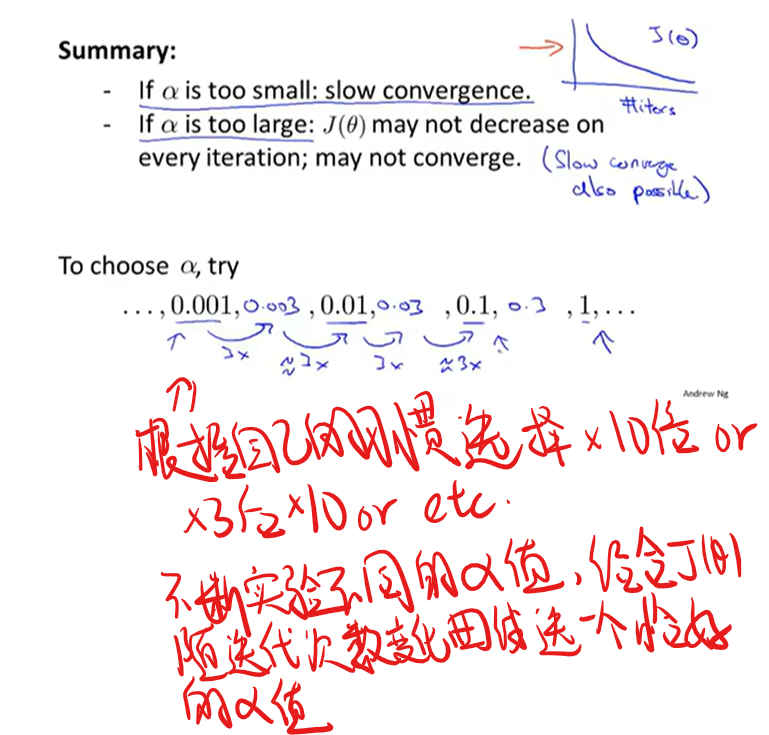 Summary:
J(θ)
- If α is too small: slow convergence.
#iters
- If α is too large: J(θ) may not decrease on
every iteration; may not converge.
(Slow converge
also possible)
To choose α, try
..., 0.001, 0.003, 0.01, 0.03, 0.1, 0.3, 1, ...
3x ≈3x 3x ≈3x
Andrew Ng
根据自己的习惯选择×10倍 or
×3倍×10 or etc.
不断实验不同的α值,结合J(θ)
随迭代次数变化曲线选一个恰好
的α值